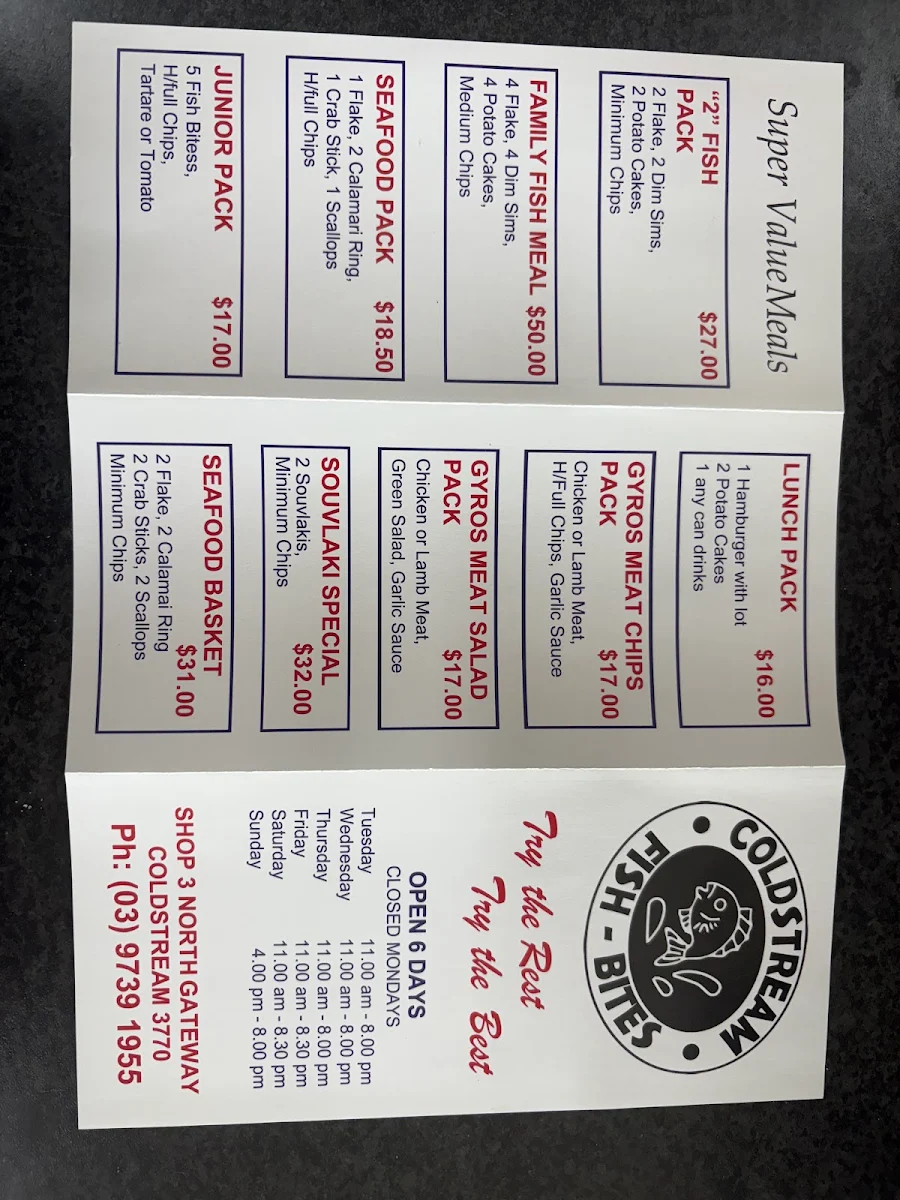 Super Value Meals
"2" FISH
PACK $27.00
2 Flake, 2 Dim Sims,
2 Potato Cakes,
Minimum Chips
FAMILY FISH MEAL $50.00
4 Flake, 4 Dim Sims,
4 Potato Cakes,
Medium Chips
SEAFOOD PACK $18.50
1 Flake, 2 Calamari Ring,
1 Crab Stick, 1 Scallops
H/full Chips
JUNIOR PACK $17.00
5 Fish Bitess,
H/full Chips,
Tartare or Tomato
LUNCH PACK
$16.00
1 Hamburger with lot
2 Potato Cakes
1 any can drinks
GYROS MEAT CHIPS
PACK $17.00
Chicken or Lamb Meat,
H/Full Chips, Garlic Sauce
GYROS MEAT SALAD
PACK $17.00
Chicken or Lamb Meat,
Green Salad, Garlic Sauce
SOUVLAKI SPECIAL
2 Souvlakis, $32.00
Minimum Chips
SEAFOOD BASKET
$31.00
2 Flake, 2 Calamai Ring
2 Crab Sticks, 2 Scallops
Minimum Chips
COLDSTREAM
FISH - BITES
Try the Rest
Try the Best
OPEN 6 DAYS
CLOSED MONDAYS
Tuesday 11.00 am - 8.00 pm
Wednesday 11.00 am - 8.00 pm
Thursday 11.00 am - 8.00 pm
Friday 11.00 am - 8.30 pm
Saturday 11.00 am - 8.30 pm
Sunday 4.00 pm - 8.00 pm
SHOP 3 NORTH GATEWAY
COLDSTREAM 3770
Ph: (03) 9739 1955